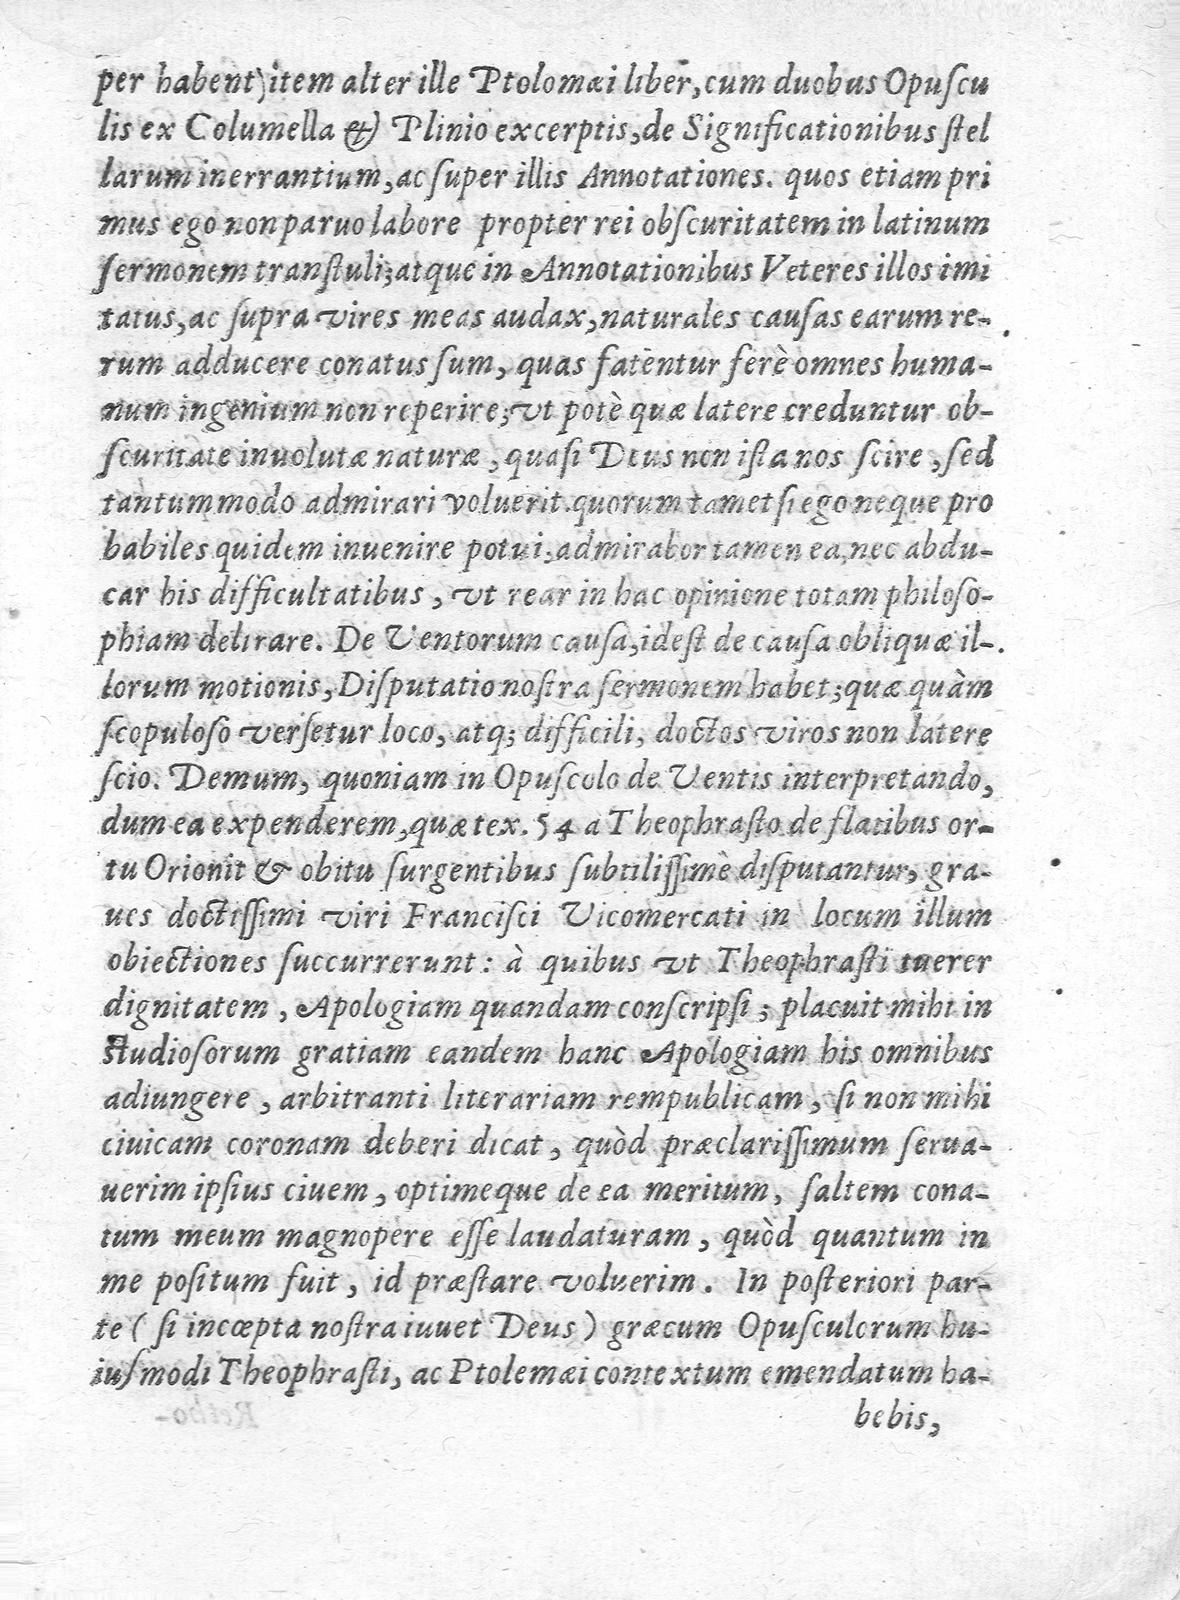 per habent) item alter ille Ptolomæi liber, cum duobus Opuſcu
lis ex Columella & Plinio excerptis, de Significationibus ſtel
larum inerrantium, ac ſuper illis Annotationes. quos etiam pri
mus ego non paruo labore propter rei obſcuritatem in latinum
ſermonem tranſtuli; atque in Annotationibus Veteres illos imi
tatus, ac ſupra vires meas audax, naturales cauſas earum re-
rum adducere conatus ſum, quas fatentur ferè omnes huma-
num ingenium non reperire; vt potè quæ latere creduntur ob-
ſcuritate inuolutæ naturæ, quaſi Deus non iſta nos ſcire, ſed
tantummodo admirari voluerit. quorum tametſi ego neque pro
babiles quidem inuenire potui, admirabor tamen ea, nec abdu-
car his difficultatibus, vt rear in hac opinione totam philoſo-
phiam delirare. De Ventorum cauſa, ideſt de cauſa obliquæ il-
lorum motionis, Diſputatio noſtra ſermonem habet; quæ quàm
ſcopuloſo verſetur loco, atq; difficili, doctos viros non latere
ſcio. Demum, quoniam in Opuſculo de Ventis interpretando,
dum ea expenderem, quæ tex. 54 a Theophraſto de flatibus or-
tu Orionit & obitu ſurgentibus ſubtiliſſimè diſputantur, gra-
ues doctiſſimi viri Franciſci Vicomercati in locum illum
obiectiones ſuccurrerunt: à quibus vt Theophraſti tuerer
dignitatem, Apologiam quandam conſcripſi; placuit mihi in
ſtudioſorum gratiam eandem hanc Apologiam his omnibus
adiungere, arbitranti literariam rempublicam, ſi non mihi
ciuicam coronam deberi dicat, quòd præclariſſimum ſerua-
uerim ipſius ciuem, optimeque de ea meritum, ſaltem cona-
tum meum magnopere eſſe laudaturam, quòd quantum in
me poſitum fuit, id præſtare voluerim. In poſteriori par-
te (ſi incœpta noſtra iuuet Deus) græcum Opuſculorum hu-
iuſmodi Theophraſti, ac Ptolemæi contextum emendatum ha-
bebis,